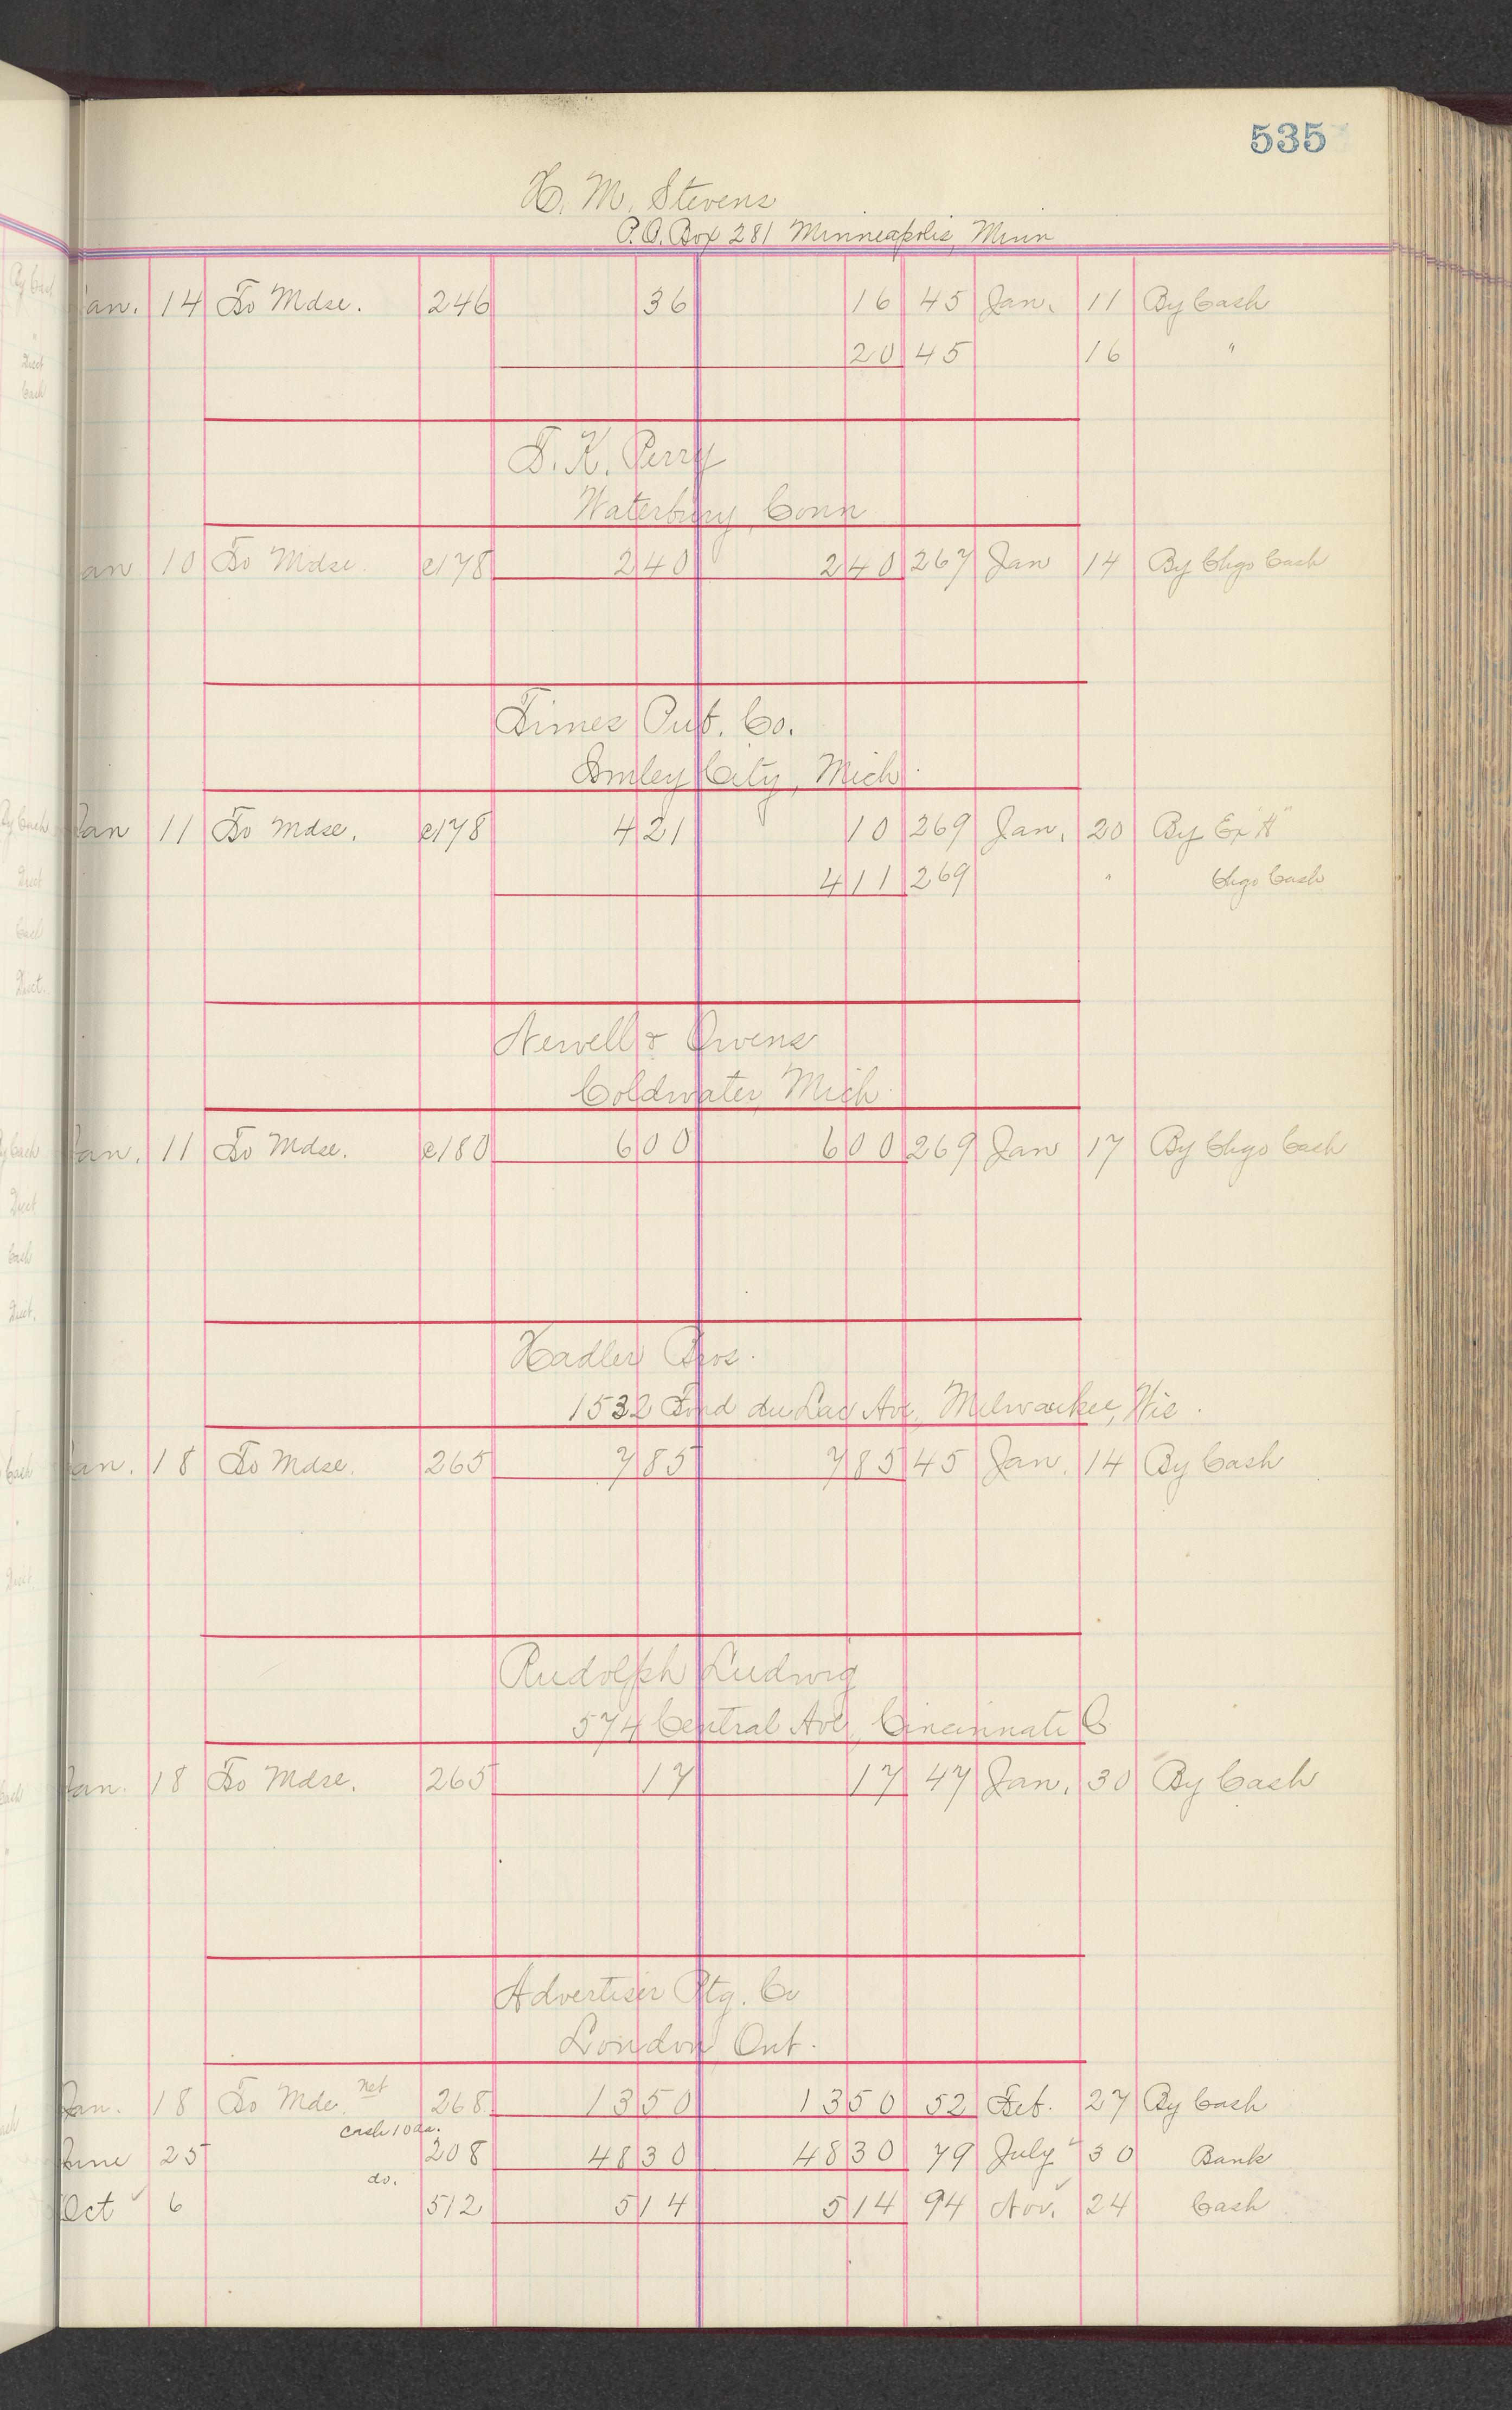 535
H. M. Stevens
P.O. Box 281 Minneapolis, Minn
an. 14 To Mdse. 246 36 16 45 Jan. 11 By Cash
20 45 16 "
T. K. Perry
Waterbury, Conn
an 10 To Mdse. c178 2 40 2 40 267 Jan 14 By Chgo Cash
Times Pub. Co.
Imley City, Mich.
Jan 11 To Mdse. c178 4 21 10 269 Jan. 20 By Ex "A"
4 11 269 " Chgo Cash
Newell & Owens
Coldwater, Mich
Jan. 11 To Mdse. c180 6 00 6 00 269 Jan 17 By Chgo Cash
Hadler Bros.
1532 Fond du Lac Ave, Milwaukee, Wis.
Jan. 18 To Mdse. 265 7 85 7 85 45 Jan. 14 By Cash
Rudolph Ludwig
574 Central Ave, Cincinnati O
Jan. 18 To Mdse. 265 17 17 47 Jan. 30 By Cash
Advertiser Ptg. Co
London, Ont.
Jan. 18 To Mde. net 268 13 50 13 50 52 Feb. 27 By Cash
cash 10 da.
June 25 208 48 30 48 30 79 July 30 Bank
do.
Oct 6 512 5 14 5 14 94 Nov. 24 Cash